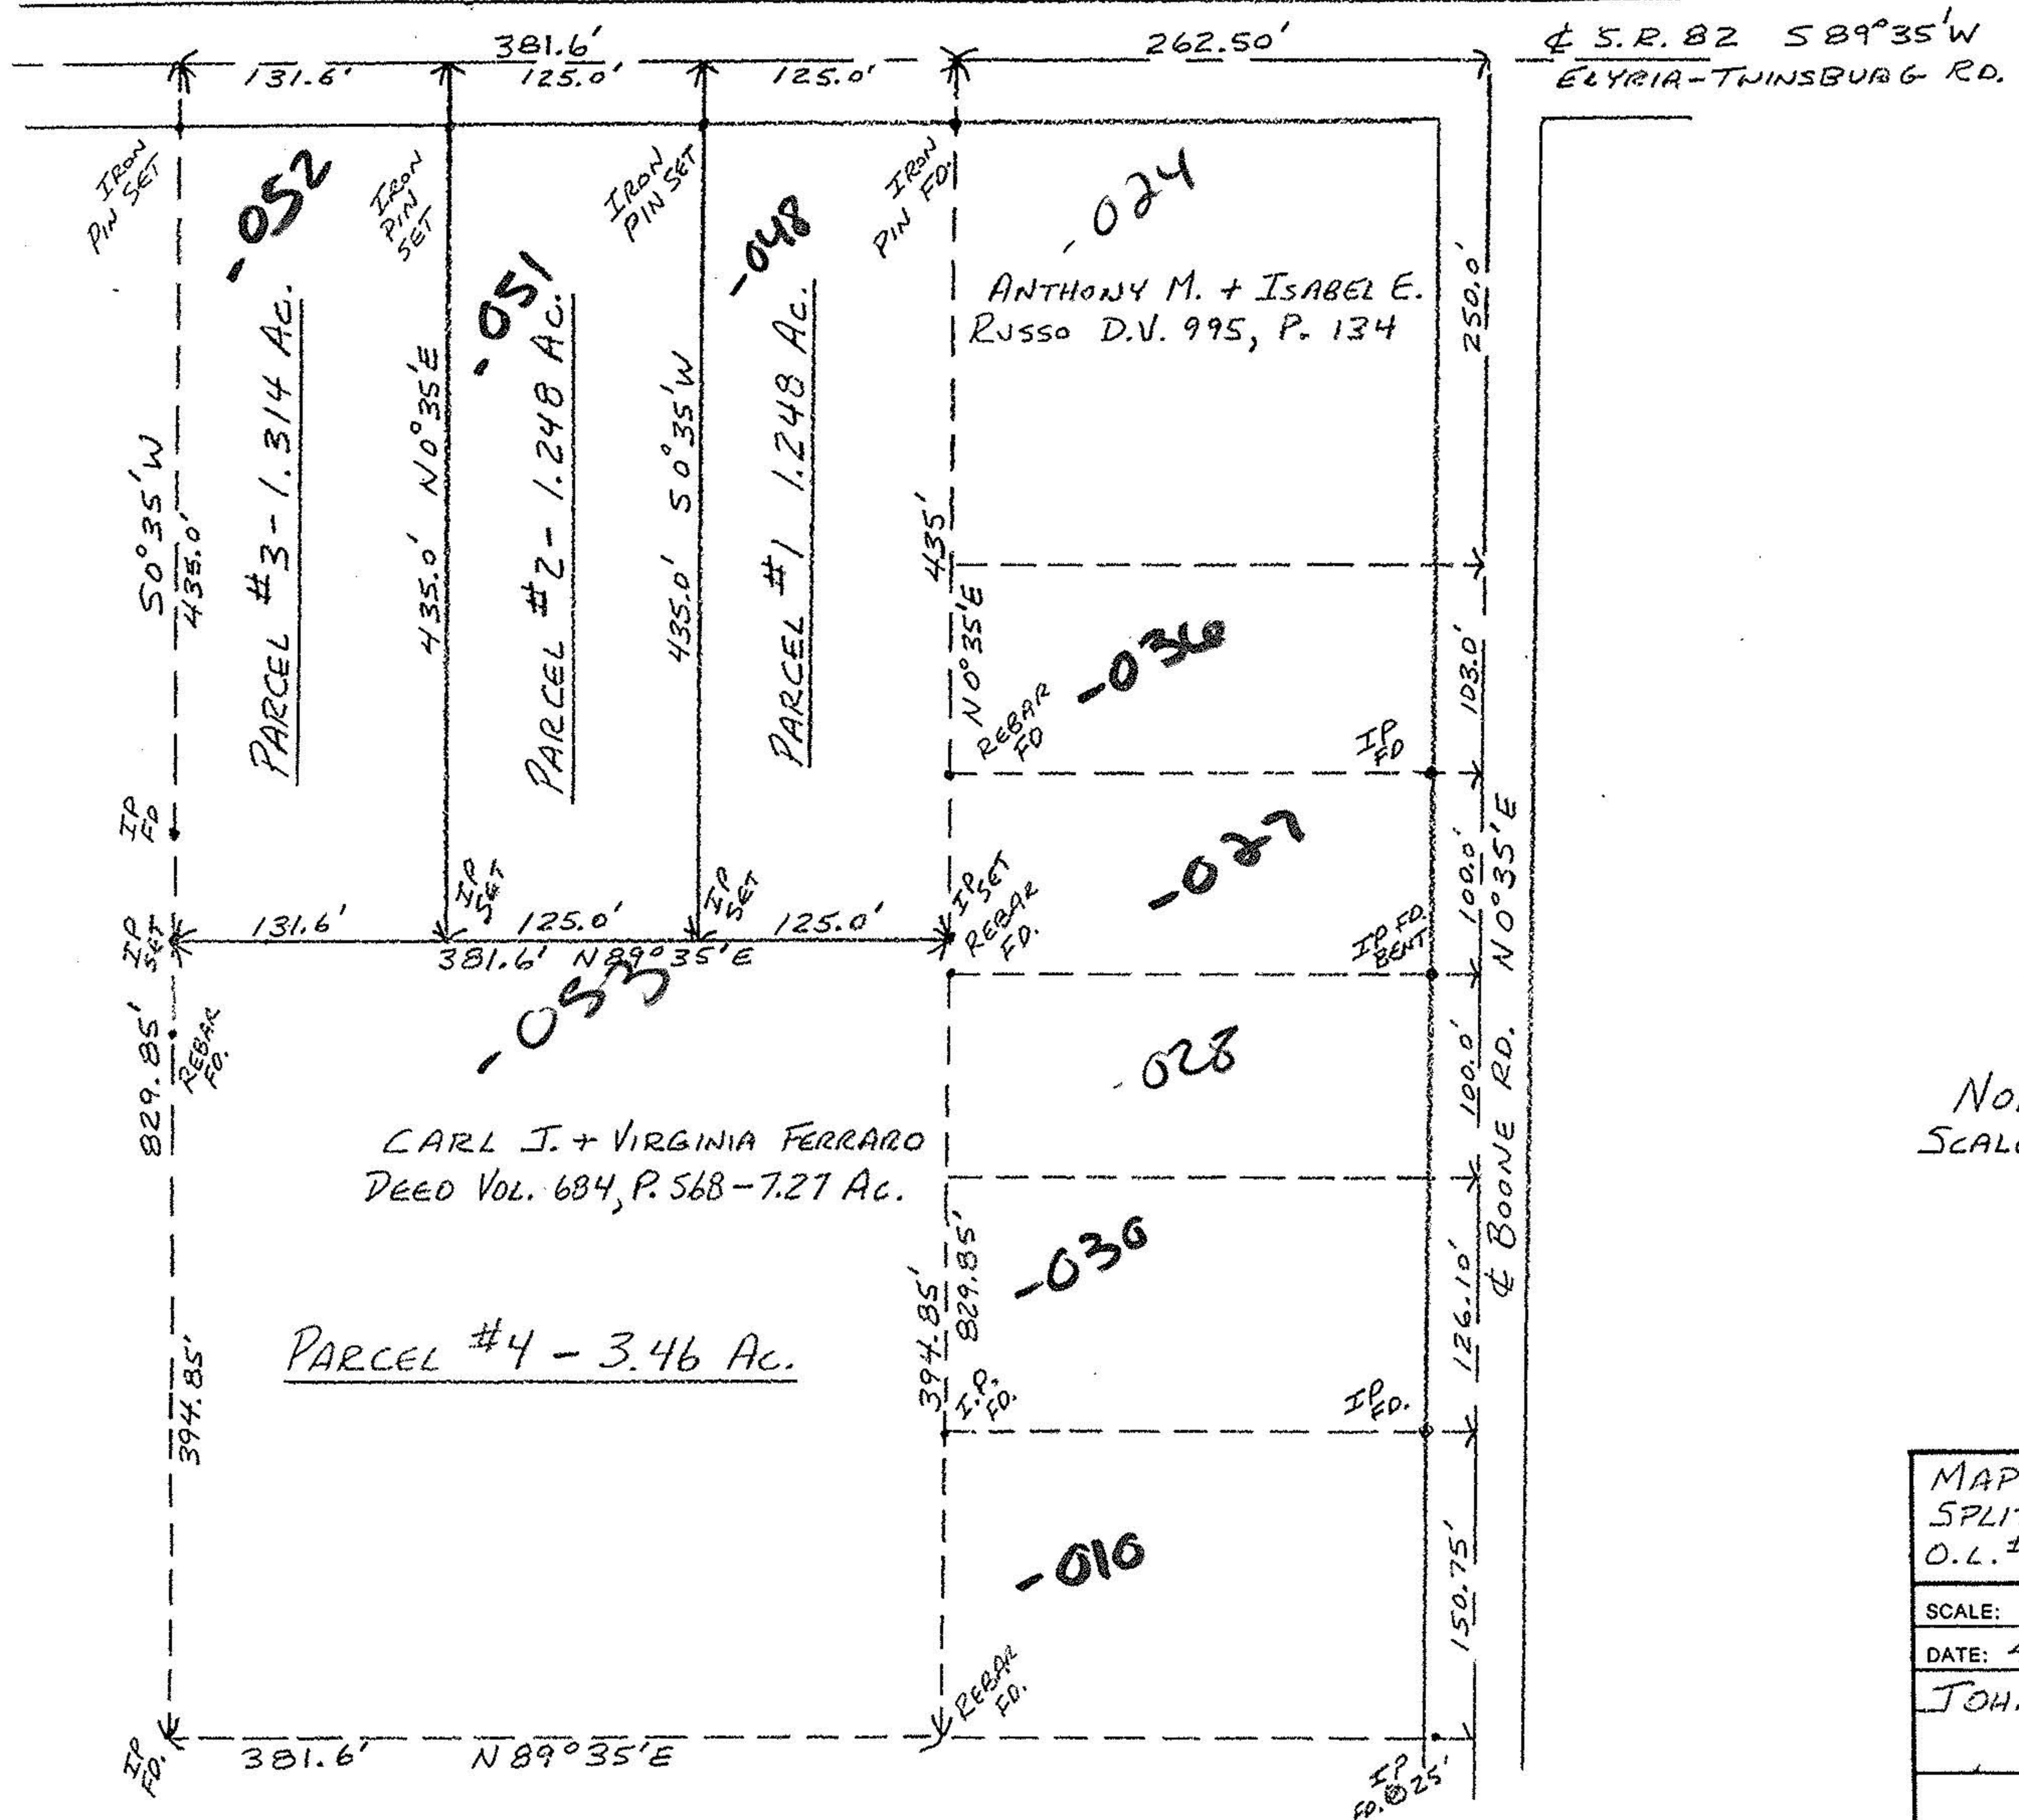 381.6'
262.50'
₵ S.R. 82 S 89°35'W
ELYRIA-TWINSBURG RD.
131.6'
125.0'
125.0'
IRON
PIN SET
IRON
PIN
SET
IRON
PIN SET
IRON
PIN FD.
-052
-051
-048
-024
ANTHONY M. + ISABEL E.
RUSSO D.V. 995, P. 134
250.0'
S0°35'W
435.0'
PARCEL #3 - 1.314 Ac.
435.0' N0°35'E
PARCEL #2 - 1.248 Ac.
435.0' S0°35'W
PARCEL #1 1.248 Ac.
435'
N0°35'E
REBAR
FD
-036
IP
FD
103.0'
IP
FD
IP
SET
IP
SET
IP
SET
IP
SET
REBAR
FD.
-027
IP FD.
BENT
100.0'
₵ BOONE RD. N0°35'E
131.6'
125.0'
125.0'
381.6' N89°35'E
-053
829.85'
REBAR
FD.
-028
100.0'
CARL J. + VIRGINIA FERRARO
DEED VOL. 684, P. 568-7.27 Ac.
-030
126.10'
394.85'
829.85'
I.P.
FD.
IP
FD.
PARCEL #4 - 3.46 Ac.
394.85'
-010
150.75'
REBAR
FD.
IP
FD.
381.6' N89°35'E
IP
FD.@25'
SCAL
MAP
SPLIT
O.L.
SCALE:
DATE:
JOH